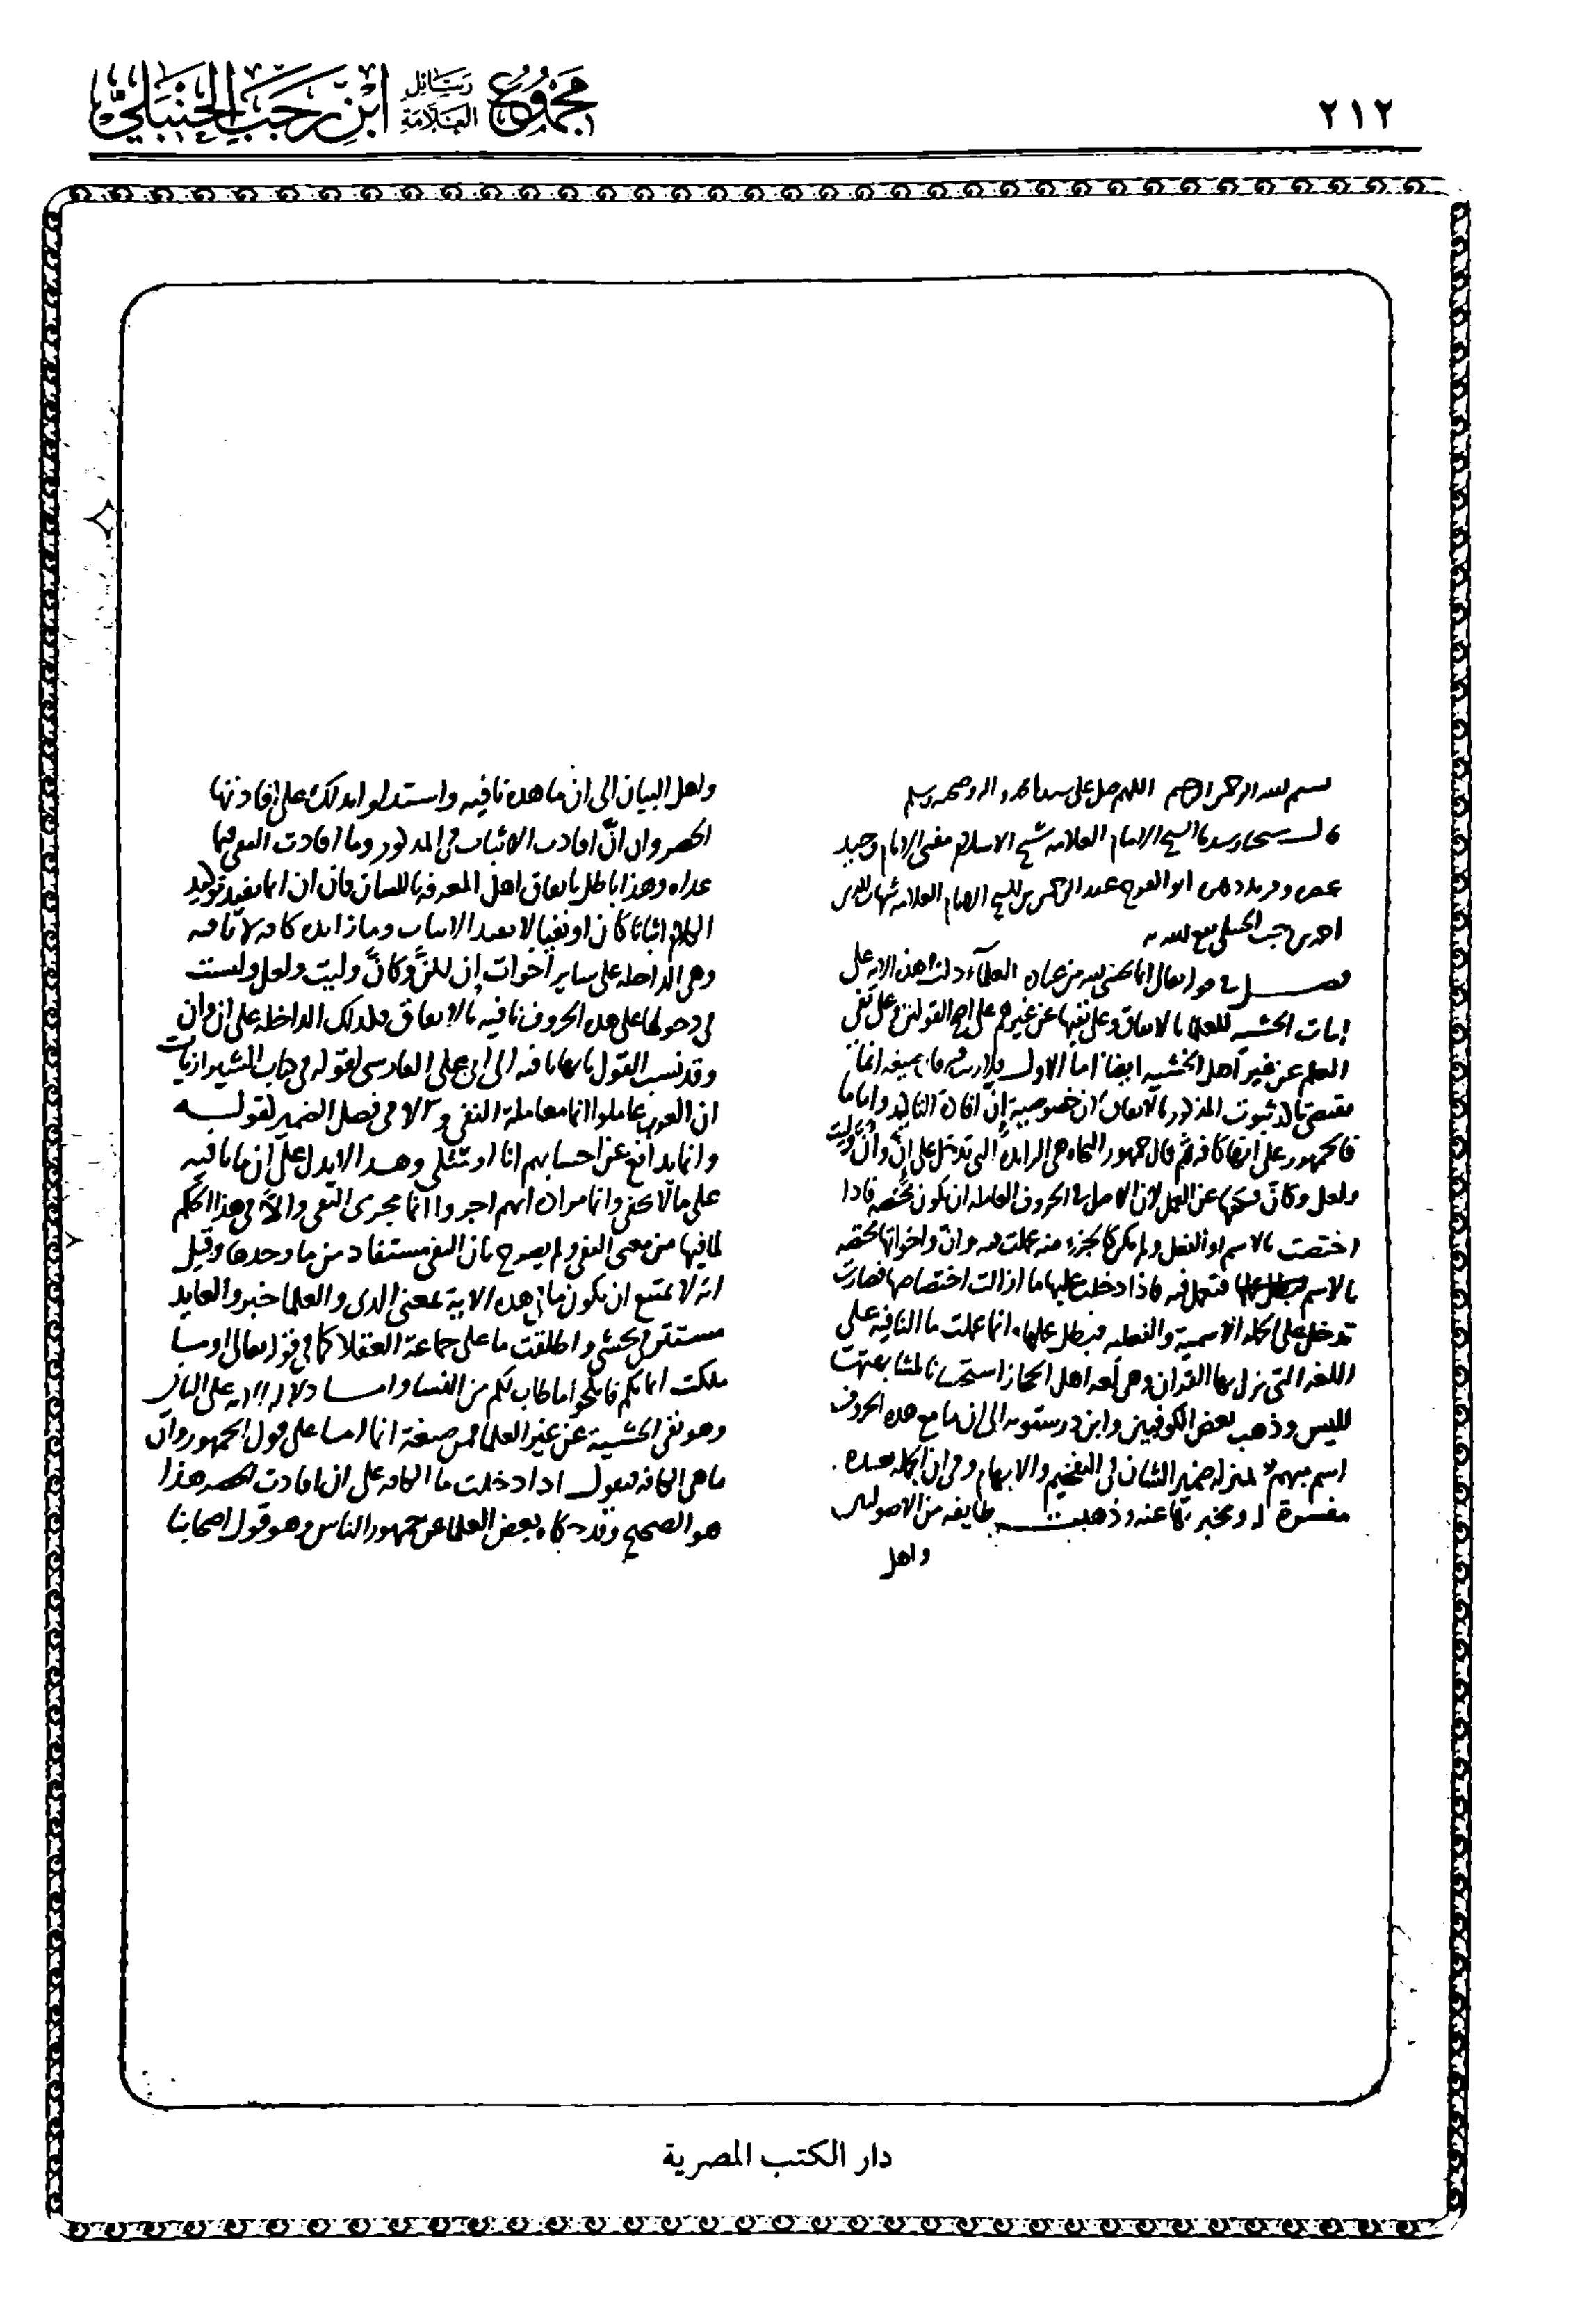 ٢١٢
مجموع رسائل العلامة ابن رجب الحنبلي
بسم الله الرحمن الرحيم اللهم صل على سيدنا محمد واله وصحبه وسلم
قال شيخنا وسيدنا الشيخ الامام العلامه شيخ الاسلام مفتى الانام وحيد
عصره وفريد دهره ابو الفرج عبد الرحمن بن الشيخ الامام العلامه شهاب الدين
احمد بن رجب الحنبلي
فصل في قوله تعالى انما يخشى الله من عباده العلماء دلت هذه الايه على
اثبات الخشيه للعلما بالاتفاق وعلى نفيها عن غيرهم على اصح القولين وعلى نفي
العلم عن غير اهل الخشيه ايضا اما الاول فلان صيغه انما
تقتضي تاكيد ثبوت المذكور بالاتفاق لان خصوصية إنّ افادة التاكيد واما ما
فالجمهور على انها كافه ثم قال جمهور النحاه هي الزايده التي تدخل على إنّ وأنّ وليت
ولعل وكأنّ فتكفها عن العمل لان الاصل في الحروف العامله ان تكون مختصه فاذا
اختصت بالاسم او الفعل ولم تكن كالجزء منه عملت فيه وان واخواتها مختصه
بالاسم فتعمل فيه فاذا دخلت عليها ما ازالت اختصاصها فصارت
تدخل على الجمله الاسمية والفعليه فبطل عملها وانما عملت ما النافيه على
اللغه التي نزل بها القران وهى لغه اهل الحجاز استحسانا لمشابهتها
لليس وذهب بعض الكوفيين وابن درستويه الى ان ما مع هذه الحروف
اسم مبهم بمنزله ضمير الشان في التفخيم والابهام وفي ان الجمله بعده
مفسرة له ومخبر بها عنه وذهبت طايفه من الاصوليين
واهل
واهل البيان الى ان ما هذه نافيه واستدلوا بذلك على افادتها
الحصر وان انّ افادت الاثبات في المذكور وما افادت النفي فيما
عداه وهذا باطل باتفاق اهل المعرفه باللسان فان ان انما تفيد توكيد
الكلام اثباتا كان او نفيا لا تفيد الاثبات وما زايده كافه لا نافيه
وهى الداخله على ساير اخوات إن لكنّ وكأنّ وليت ولعل وليست
في دخولها على هذه الحروف نافيه بالاتفاق فكذلك الداخله على ان وأن
وقد نسب القول بانها نافيه الى ابي علي الفارسى لقوله في كتاب الشيرازيات
ان العرب عاملوا انما معاملة النفي و الا في فصل الضمير لقوله
وانما يدافع عن احسابهم انا او مثلي وهذا لا يدل على ان ما نافيه
على ما لا يخفى وانما مراده انهم اجروا انما مجرى النفي والا في هذا الحكم
لما فيها من معنى النفي ولم يصرح بان النفي مستفاد من ما وحدها وقيل
انه لا يمتنع ان يكون ما في هذه الاية بمعنى الذي والعلما خبر والعايد
مستتر في يخشى واطلقت ما على جماعة العقلا كما في قوله تعالى او ما
ملكت ايمانكم فانكحوا ما طاب لكم من النسا واما دلاله الايه على الثاني
وهو نفي الخشية عن غير العلما فمن صيغة انما اما على قول الجمهور وأن
ما هى الكافه فنقول اذا دخلت ما الكافه على ان افادت الحصر هذا
هو الصحيح وقد حكاه بعض العلما عن جمهور الناس وهو قول اصحابنا
دار الكتب المصرية